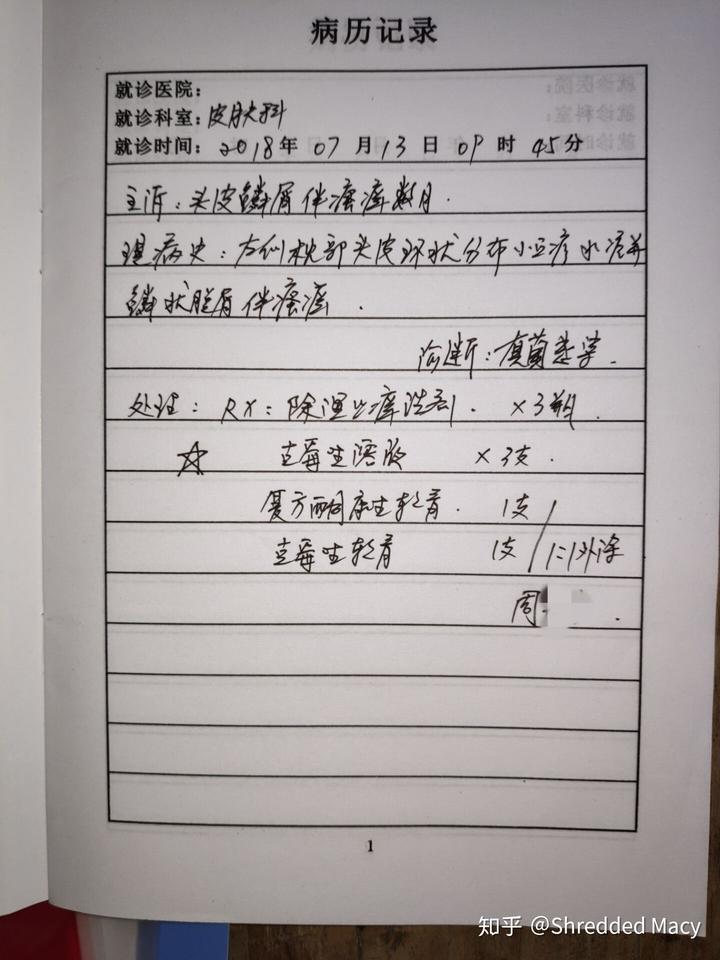 病历记录
就诊医院：
就诊科室：皮肤科
就诊时间：2018年07月13日09时45分
主诉：头皮鳞屑伴瘙痒数月.
现病史：左侧枕部头皮环状分布小丘疹水泡并
鳞状脱屑伴瘙痒.
诊断：真菌
处理：RX：除湿止痒洗剂. ×3瓶.
☆ 芷莓生溶液 ×3支.
复方酮康生软膏. 1支
芷莓生软膏 1支 / 1:1外涂
周 .
1
知乎 @Shredded Macy